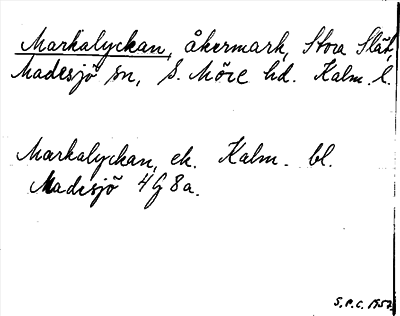 Markalyckan, åkermark, Stora Slät,
Madesjö sn, S. Möre hd. Kalm. l.
Markalyckan, ek. Kalm. bl.
Madesjö 4G8a.
S.P.C. 1950